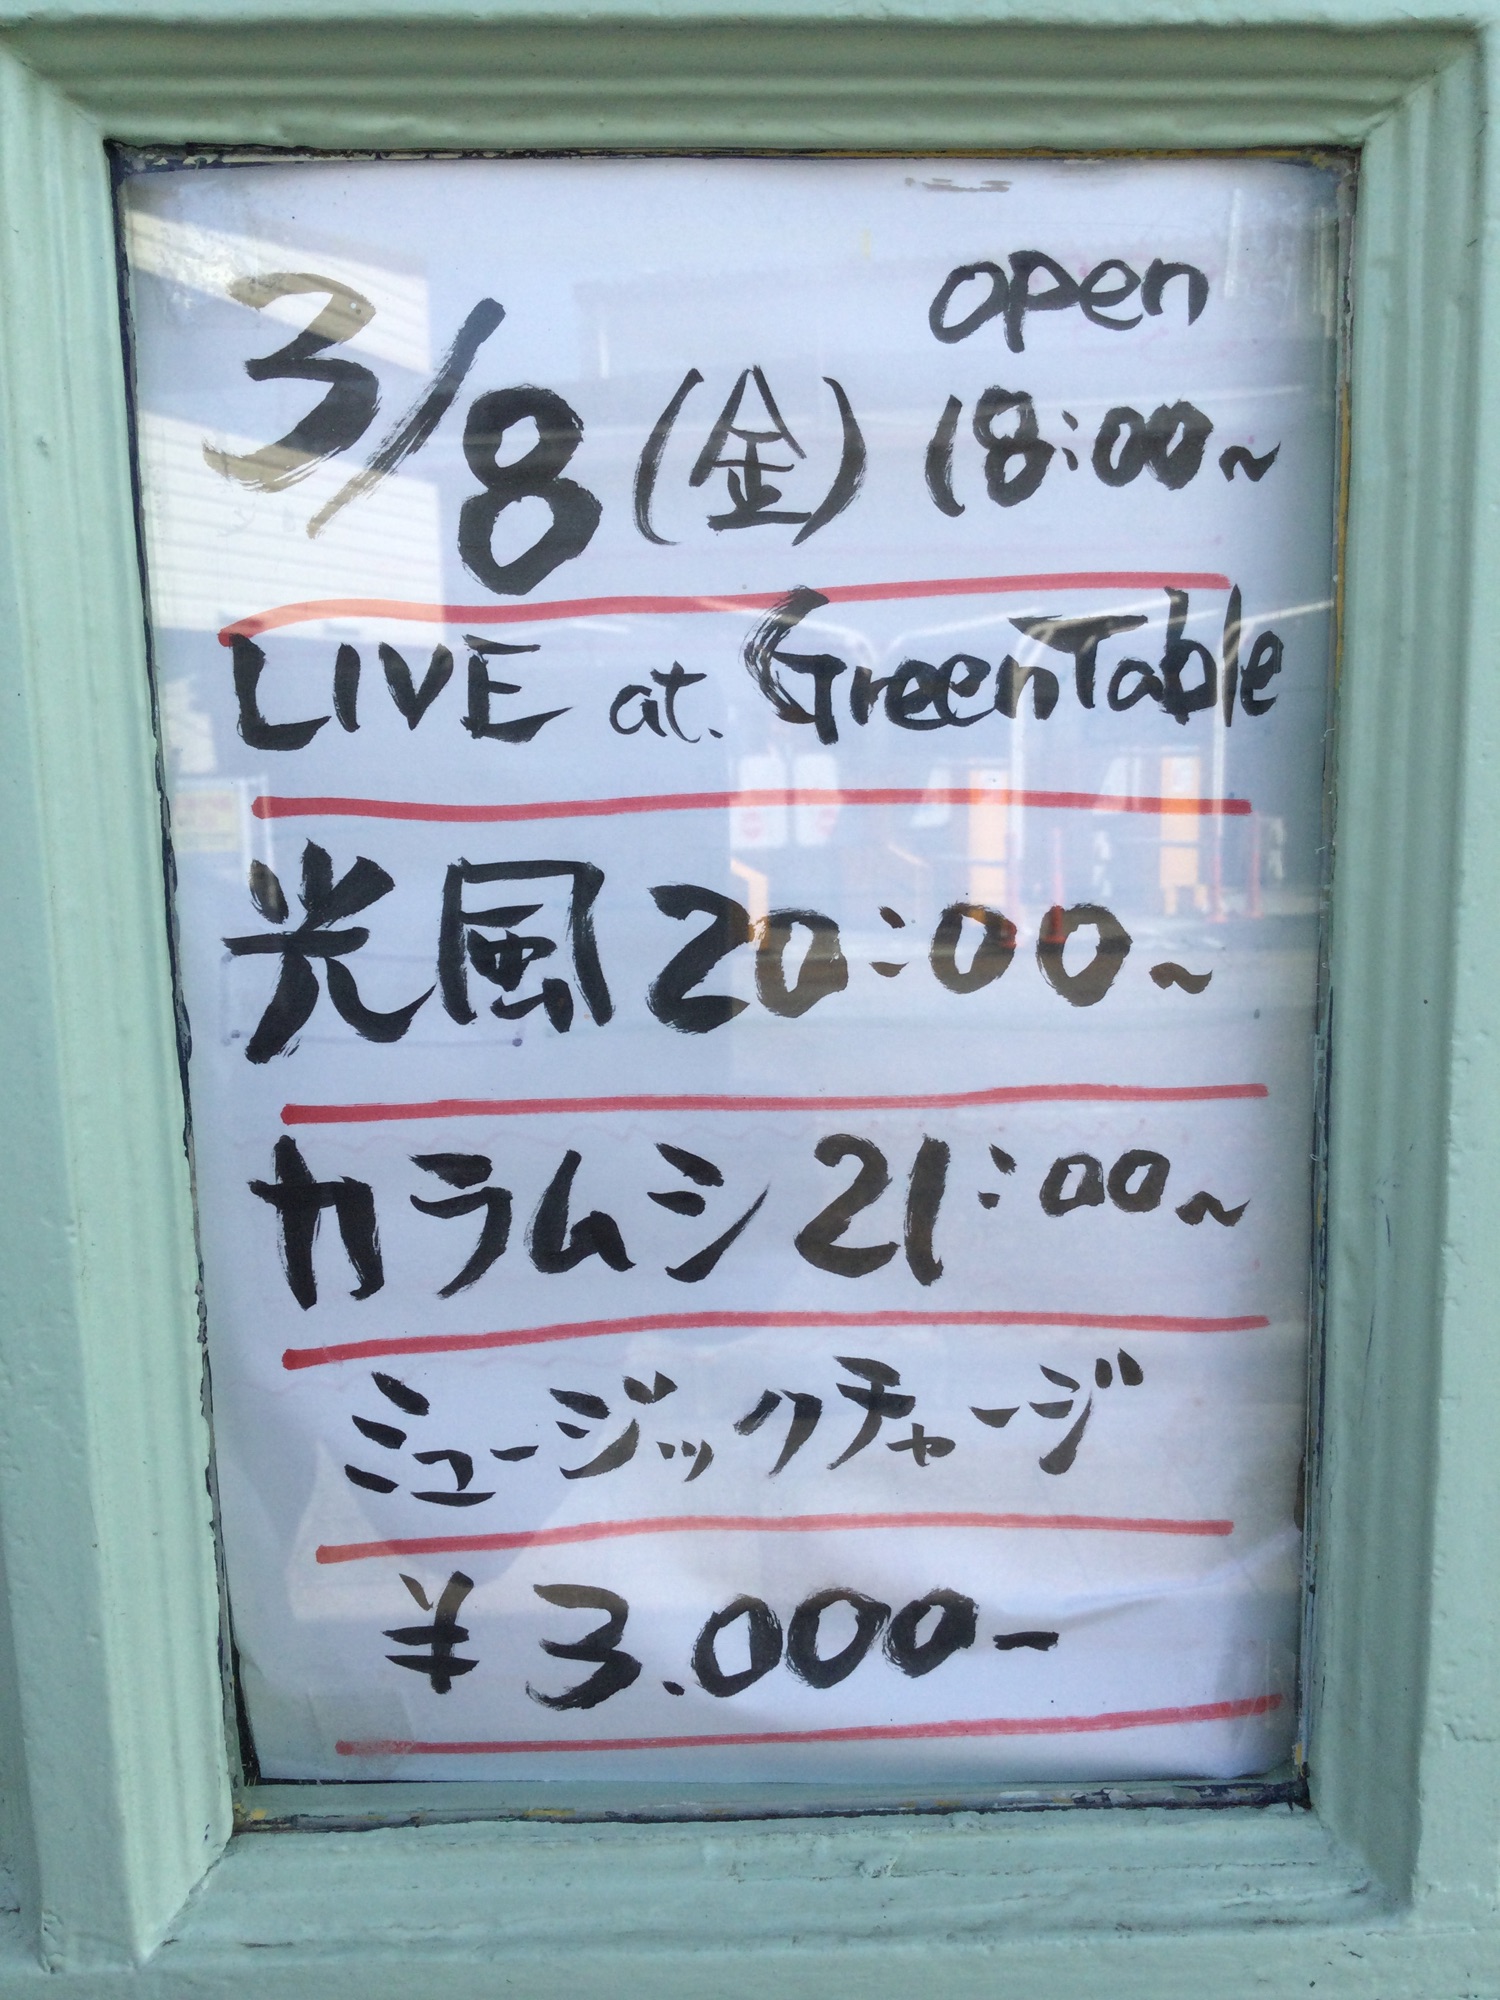 3/8(金) open 18:00~
LIVE at. GreenTable
光風 20:00~
カラムシ 21:00~
ミュージックチャージ
¥3.000-